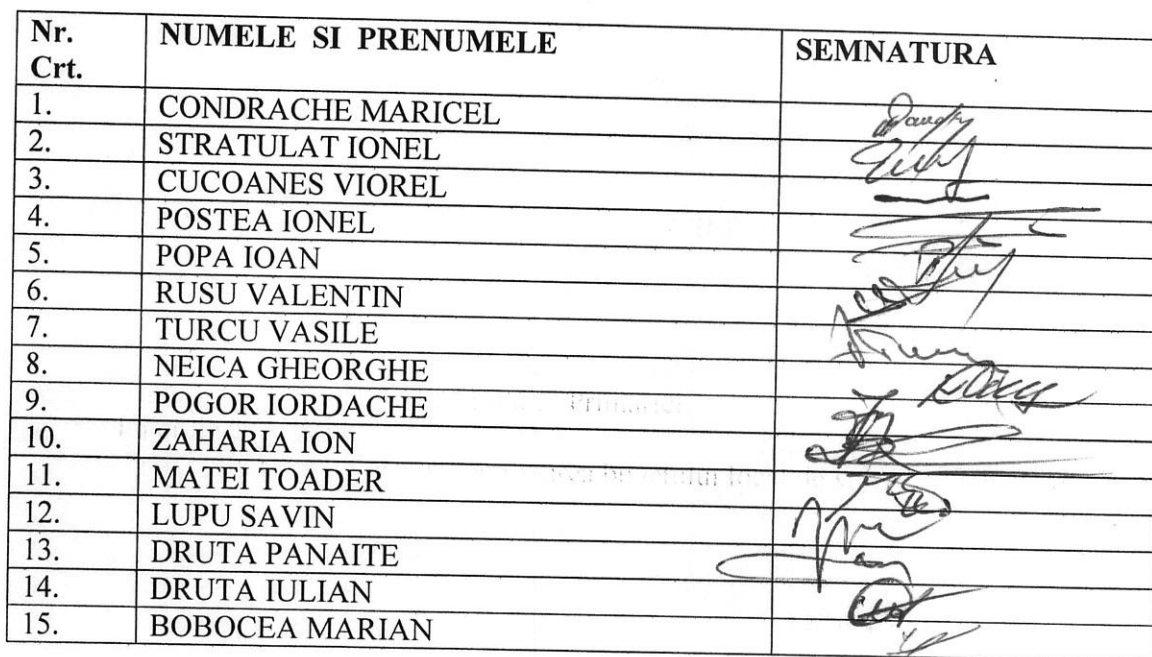 Nr. Crt. NUMELE SI PRENUMELE SEMNATURA
1. CONDRACHE MARICEL
2. STRATULAT IONEL
3. CUCOANES VIOREL
4. POSTEA IONEL
5. POPA IOAN
6. RUSU VALENTIN
7. TURCU VASILE
8. NEICA GHEORGHE
9. POGOR IORDACHE
10. ZAHARIA ION
11. MATEI TOADER
12. LUPU SAVIN
13. DRUTA PANAITE
14. DRUTA IULIAN
15. BOBOCEA MARIAN